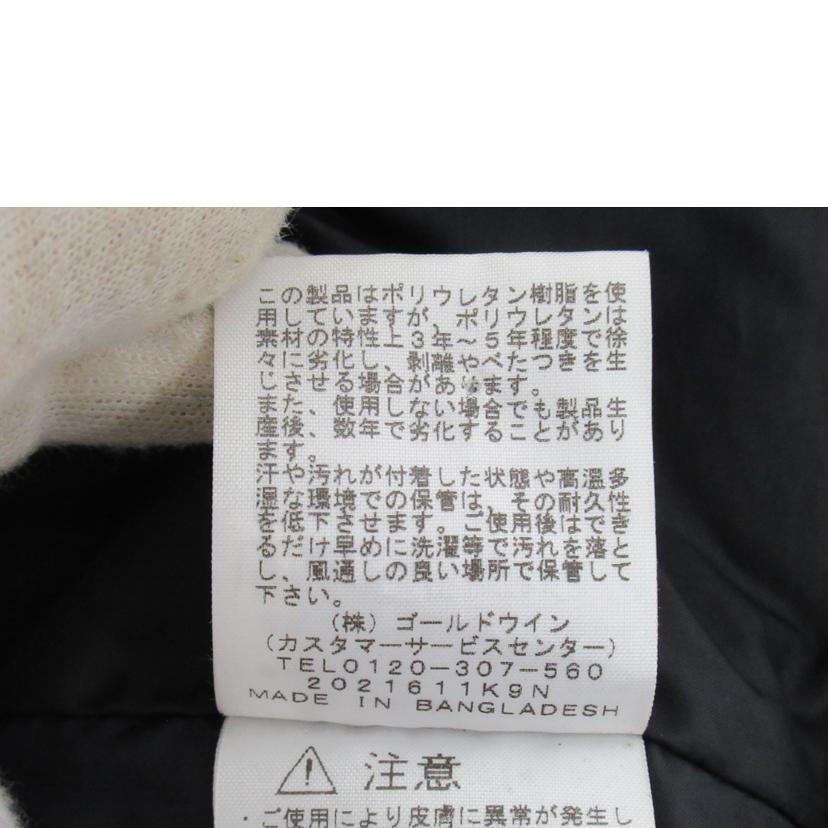 この製品はポリウレタン樹脂を使
用していますが、ポリウレタンは
素材の特性上3年～5年程度で徐
々に劣化し、剥離やべたつきを生
じさせる場合があります。
また、使用しない場合でも製品生
産後、数年で劣化することがあり
ます。
汗や汚れが付着した状態や高温多
湿な環境での保管は、その耐久性
を低下させます。ご使用後はでき
るだけ早めに洗濯等で汚れを落と
し、風通しの良い場所で保管して
下さい。
(株)ゴールドウイン
(カスタマーサービスセンター)
TEL0120-307-560
2021611K9N
MADE IN BANGLADESH
注意
・ご使用により皮膚に異常が発生し